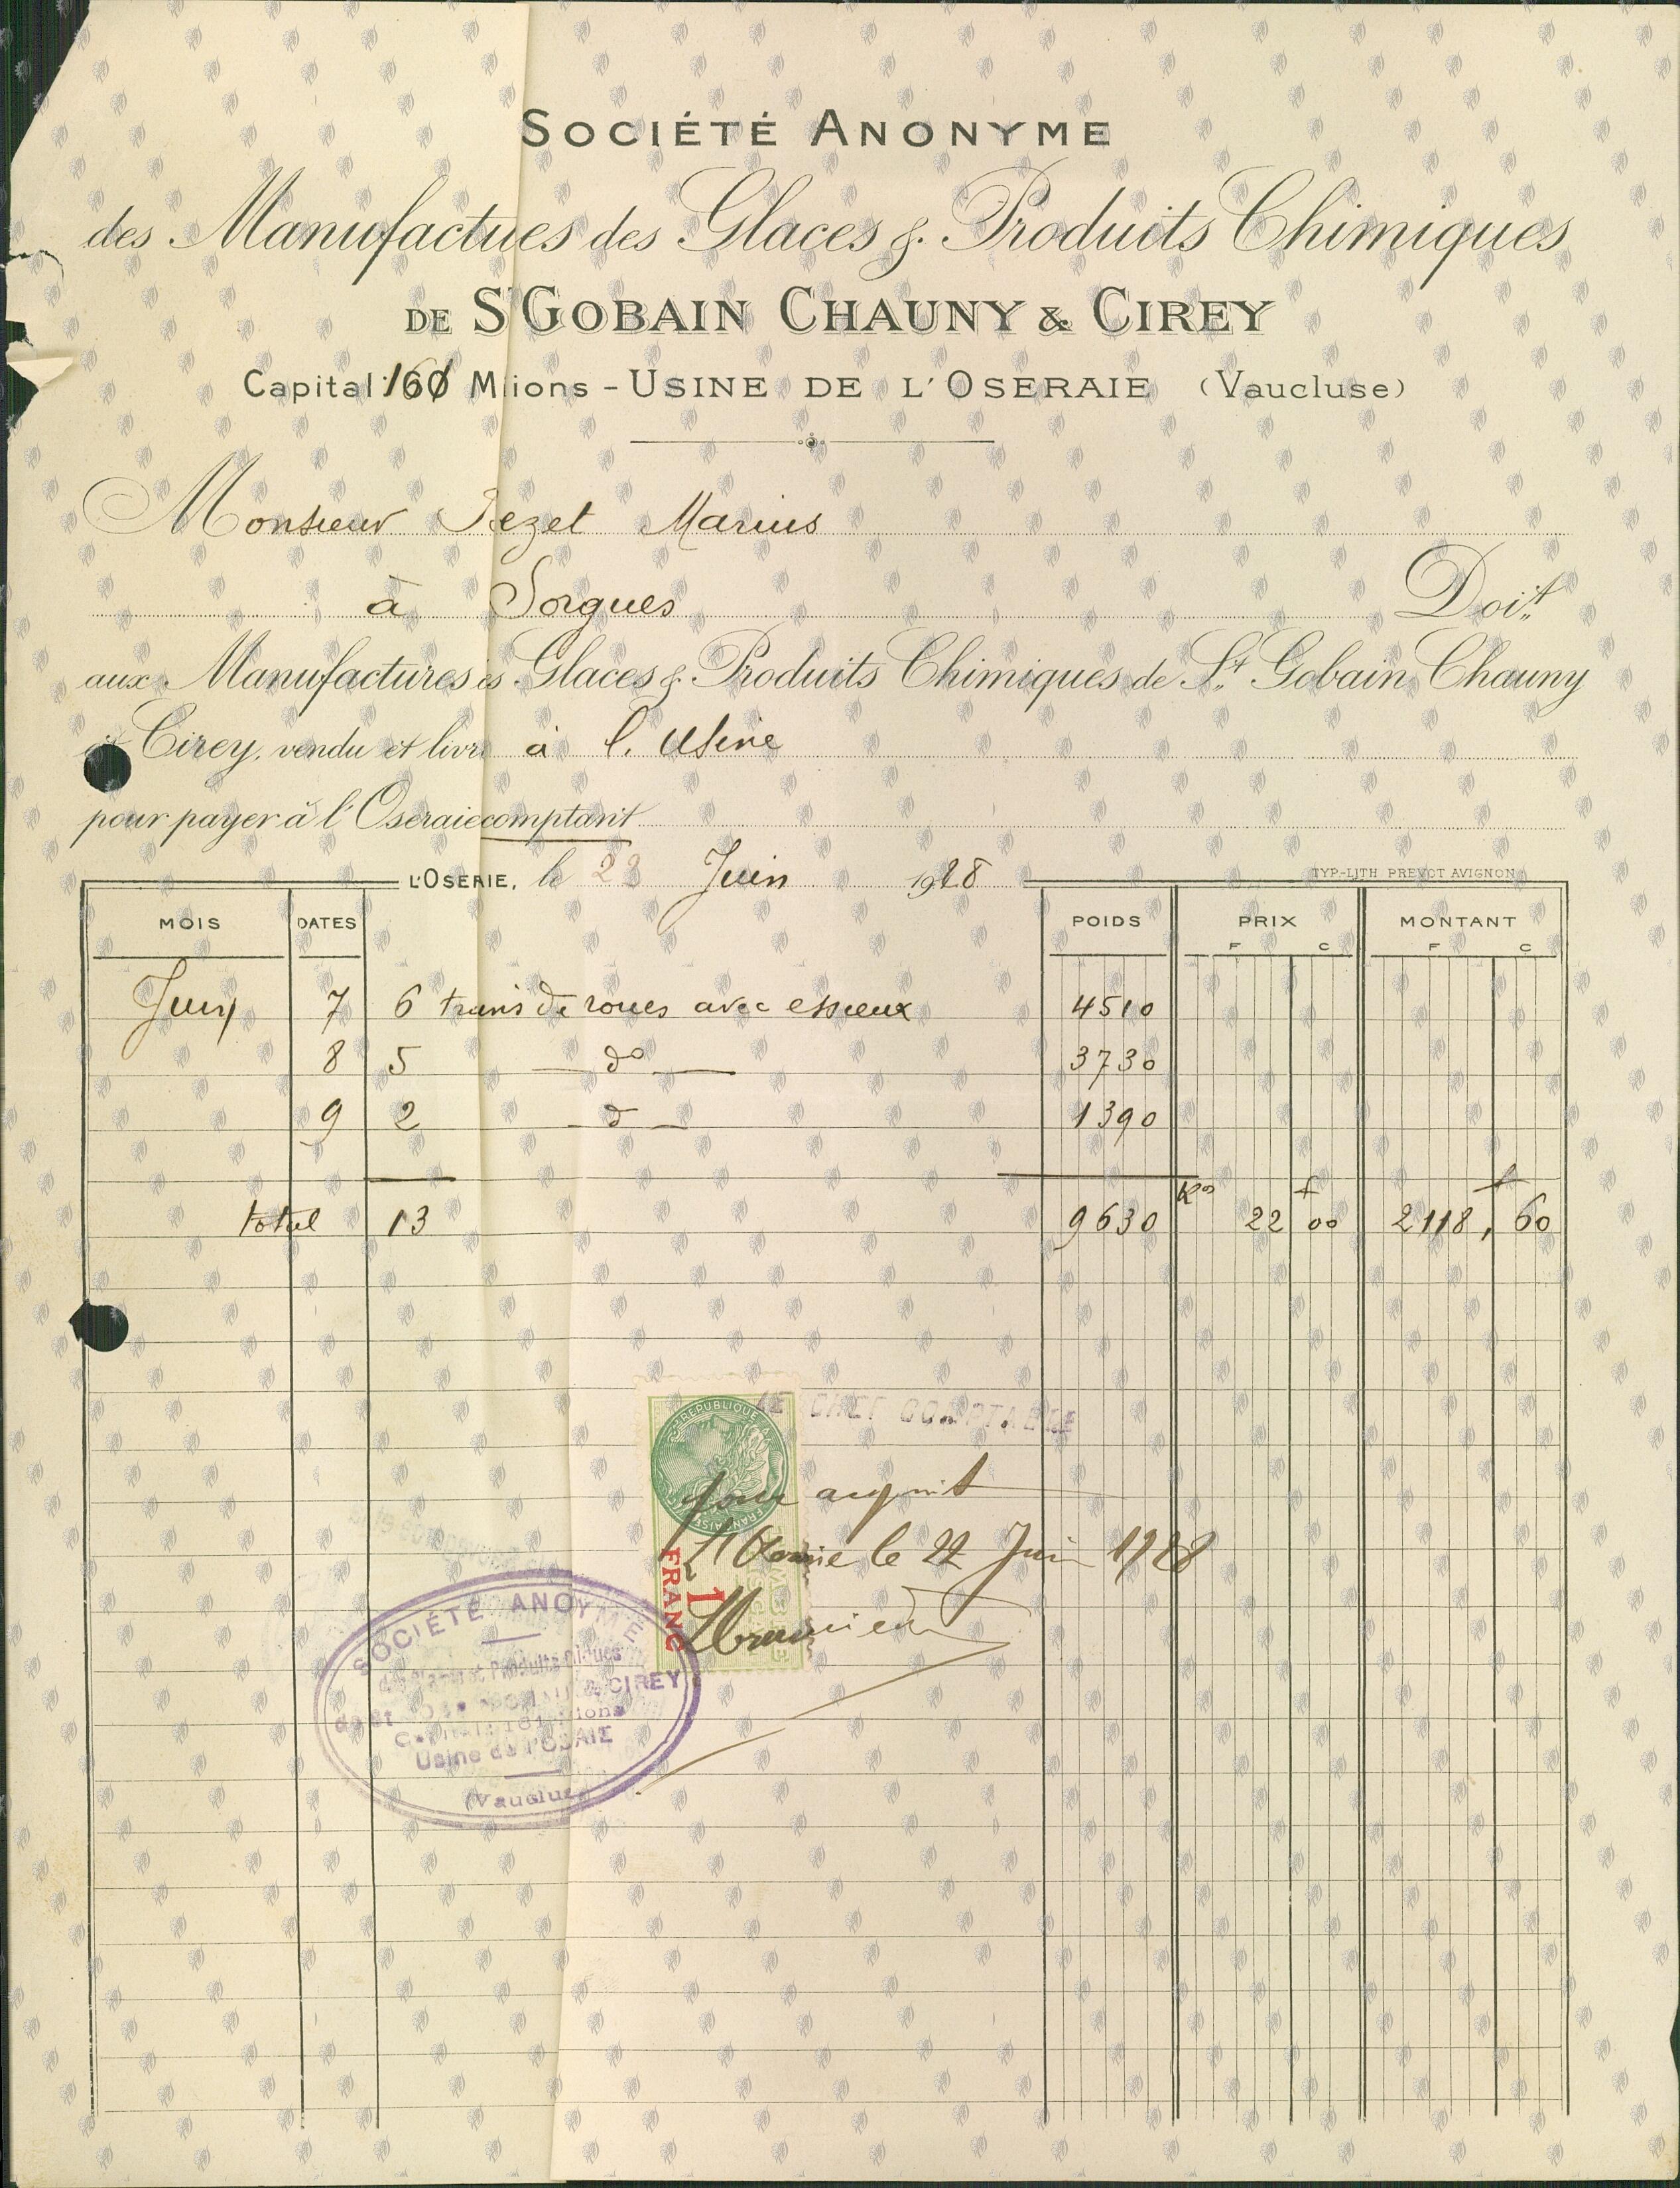 SOCIÉTÉ ANONYME
des Manufactues des Glaces & Produits Chimiques
DE St GOBAIN CHAUNY & CIREY
Capital: 160 Mlions - USINE DE L'OSERAIE (Vaucluse)
Monsieur Jezet Marius
à Sorgues Doit
aux Manufactures es Glaces & Produits Chimiques de St Gobain Chauny
et Cirey, vendu et livré à l'Usine
pour payer à l'Oseraie comptant
L'OSERIE, le 23 Juin 1928
TYP-LITH PREVOT AVIGNON
MOIS DATES POIDS PRIX MONTANT
F C F C
Juin 7 6 trains de roues avec essieux 4510
8 5 — do — 3730
9 2 — d — 1390
total 13 9630 Kos 22 f 00 2118, f 60
LE CHEF COMPTABLE
REPUBLIQUE FRANÇAISE
pour acquit
L'Oseraie le 22 Juin 1928
1 FRANC
SOCIÉTÉ ANOYME
CIREY
Usine de l'OSAIE
(Vauclus